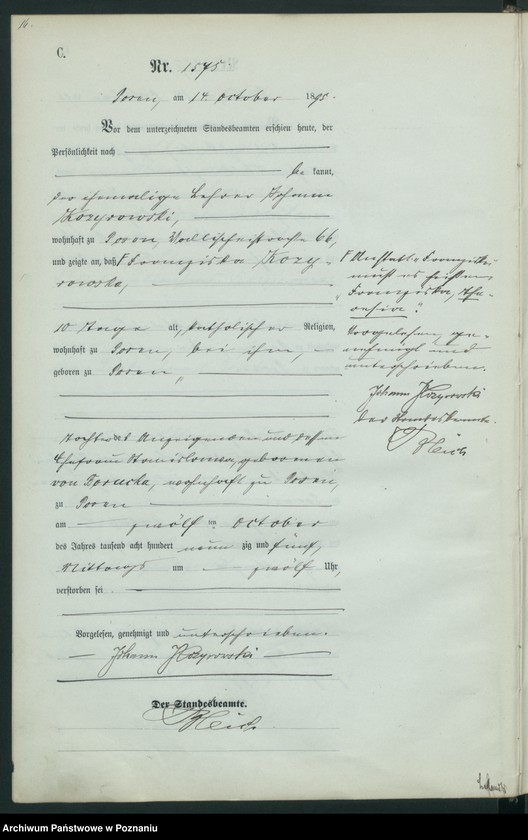 C.
Nr. 1575
Posen, am 14. October 1895.
Vor dem unterzeichneten Standesbeamten erschien heute, der
Persönlichkeit nach
be kannt,
der ehemalige Lehrer Johann
Kozyrowski,
wohnhaft zu Posen, Wallischeistraße 66,
und zeigte an, daß Franziska Kozy-
rowska,
10 Tage alt, katholischer Religion,
wohnhaft zu Posen, bei ihm,
geboren zu Posen,
Tochter des Anzeigenden und dessen
Ehefrau Stanislawa, geborenen
von
wohnhaft zu Posen,
zu Posen
am zwölf ten October
des Jahres tausend acht hundert neun zig und fünf,
Mittags um zwölf Uhr,
verstorben sei
Vorgelesen, genehmigt und unterschrieben.
Johann Kozyrowski
Der Standesbeamte.
Anstatt „Franziska“
muß es heißen:
„Franziska, The-
resia“.
Vorgelesen, ge-
nehmigt und
unterschrieben.
Johann Kozyrowski
Der Standesbeamte.
Archiwum Państwowe w Poznaniu